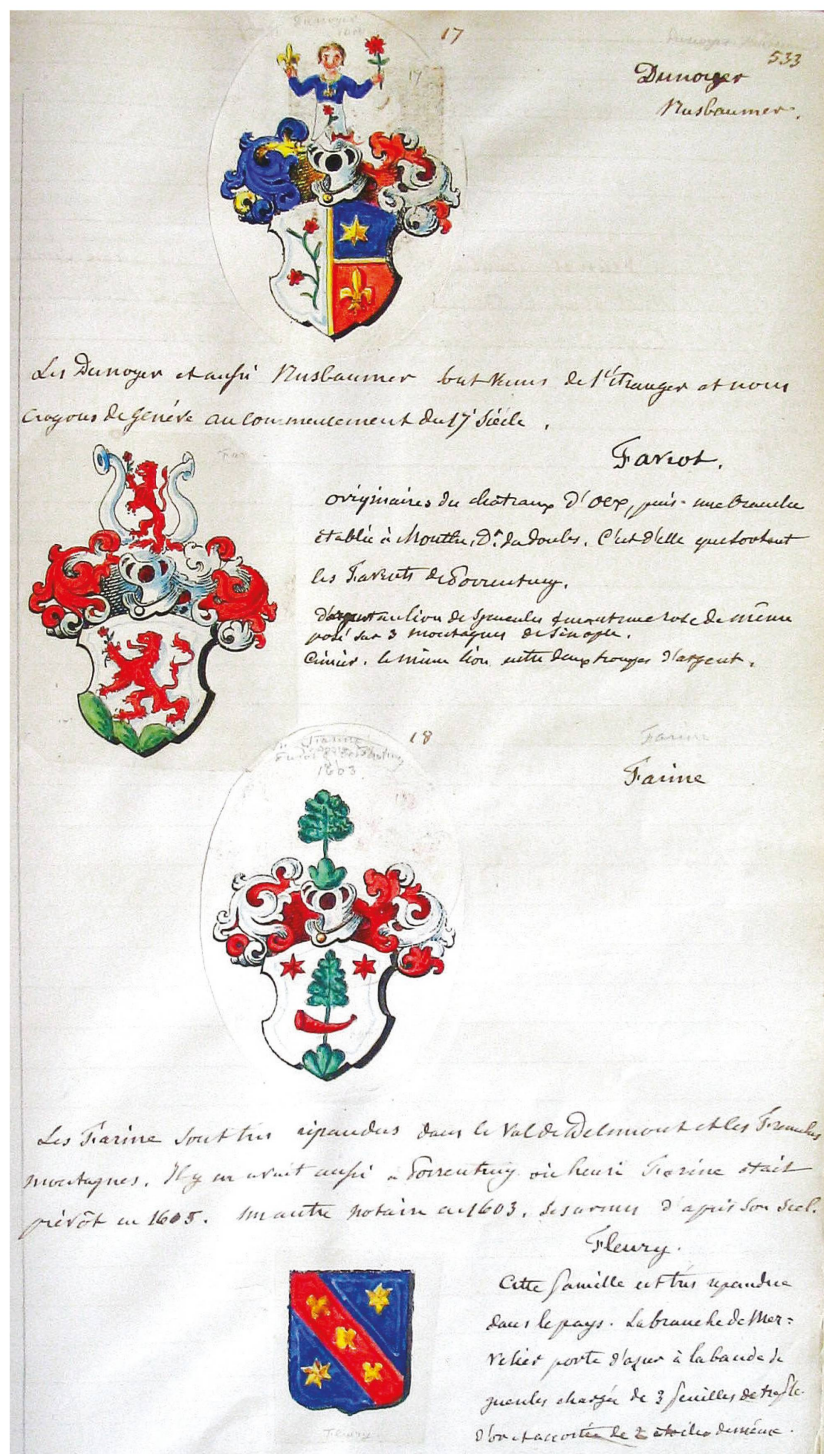 Dunoyer
17
533
Dunoyer
Nusbaumer.
Les Dunoyer et aussi Nusbaumer sont venus de l'Étranger et nous
croyons de Genéve au commencement du 17e Siécle.
Farvot.
originaires du chateaux d'Oex, puis une branche
établie à Mouthe, Dt. du Doubs. C'est d'elle que sortent
les de Porrentruy.
d'argent au lion de gueules tenant une rose de même
posé sur 3 montagnes de Sinople.
Cimier. le même lion entre deux trompes d'argent.
18
1603
Farine
Farine
Les Farine sont trés répandus dans le Val de Delémont et les Franches
montagnes. Il y en avait aussi a Porrentruy où henri Farine était
prévôt en 1605. un autre notaire en 1603. Ses armes d'après son scel.
Fleury.
Cette famille est trés repandue
dans le pays. La branche de Mer=
velier porte d'azur à la bande de
gueules chargée de 3 feuilles de trefle
d'or et accostée de 2 étoiles de même.
Fleury